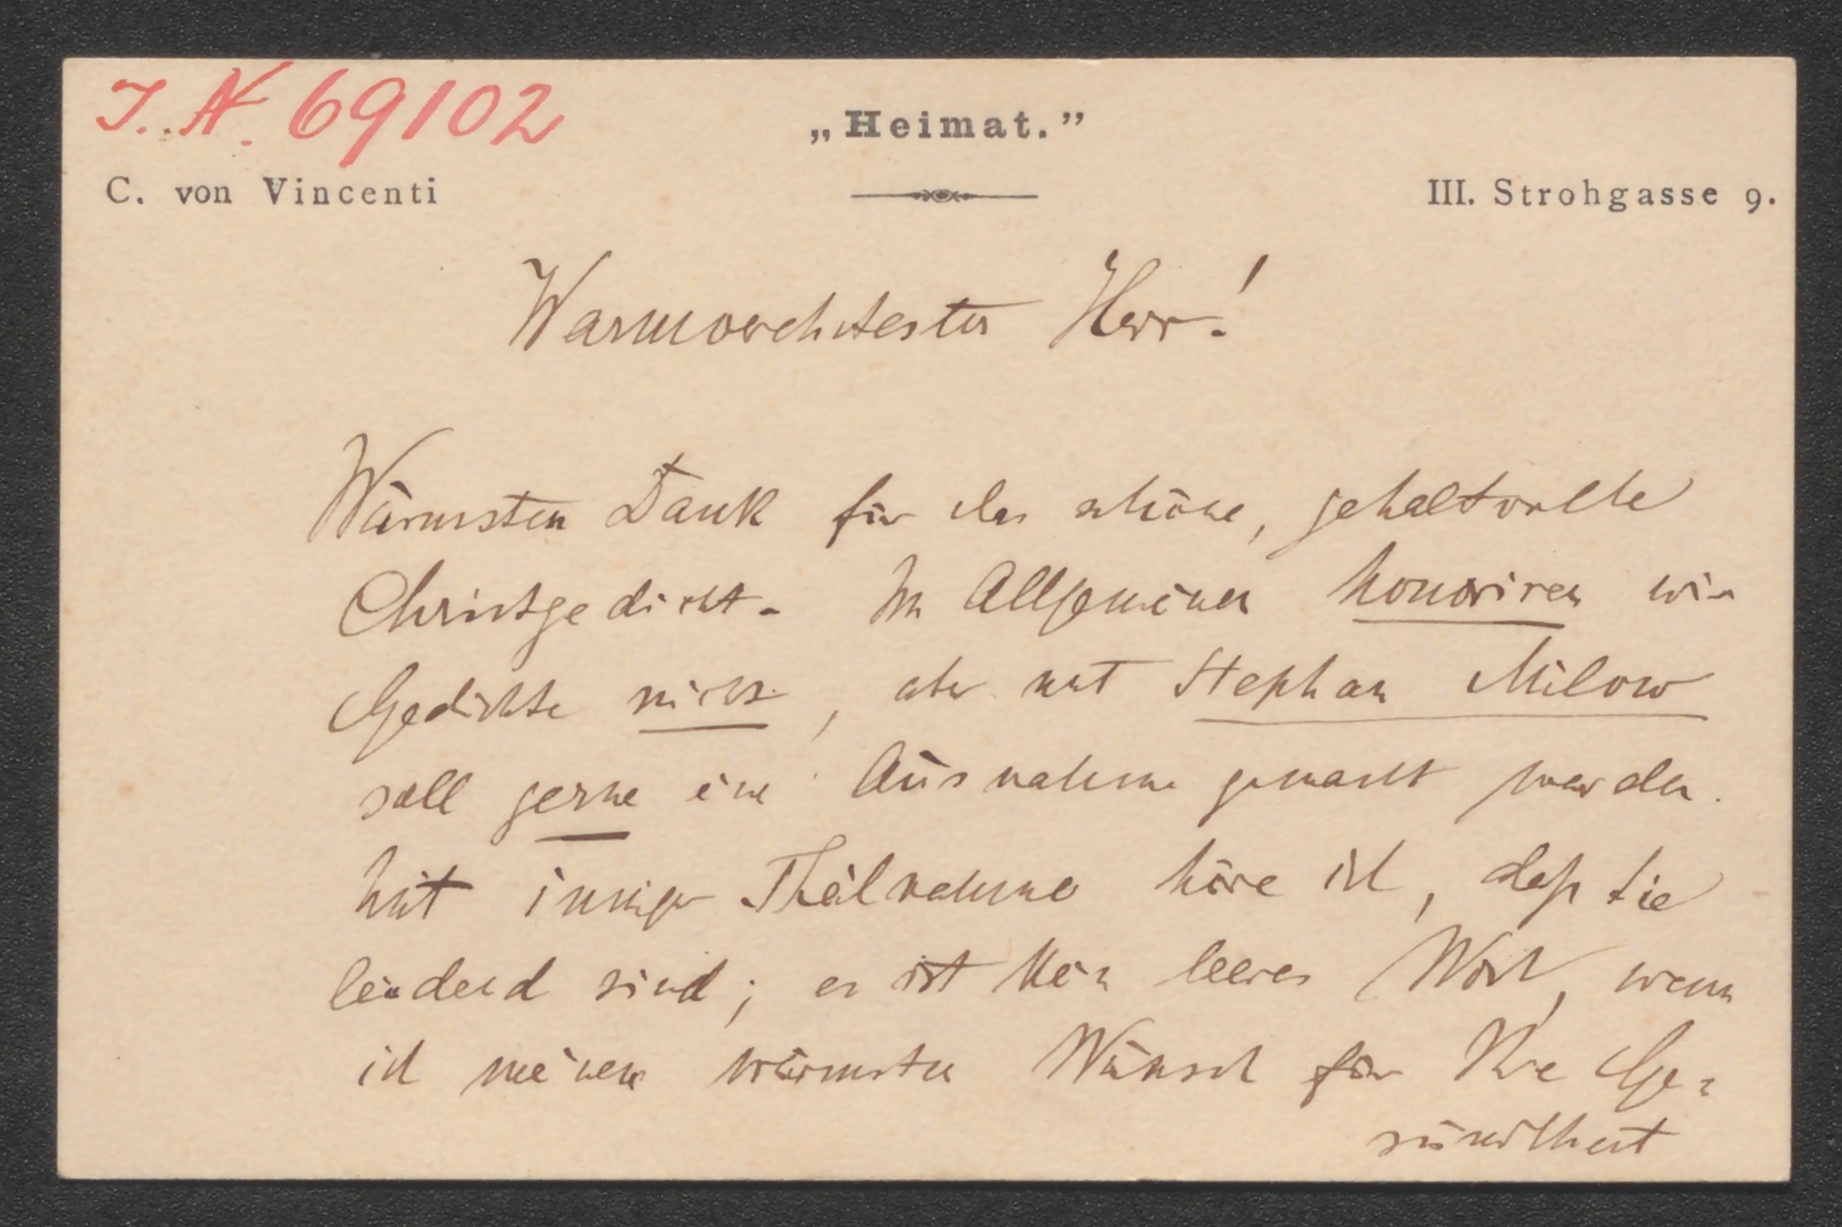 J. N. 69102
„Heimat.”
C. von Vincenti
III. Strohgasse 9.
Warmverehrtester Herr!
Wärmsten Dank für das schöne, gehaltvolle
Christgedicht. Im Allgemeinen honoriren wir
Gedichte nicht, aber mit Stephan Milow
soll gerne eine Ausnahme gemacht werden.
Mit inniger Theilnahme höre ich, daß Sie
leidend sind; es ist kein leeres Wort, wenn
ich meinen wärmsten Wunsch für Ihre Ge=
sundheit